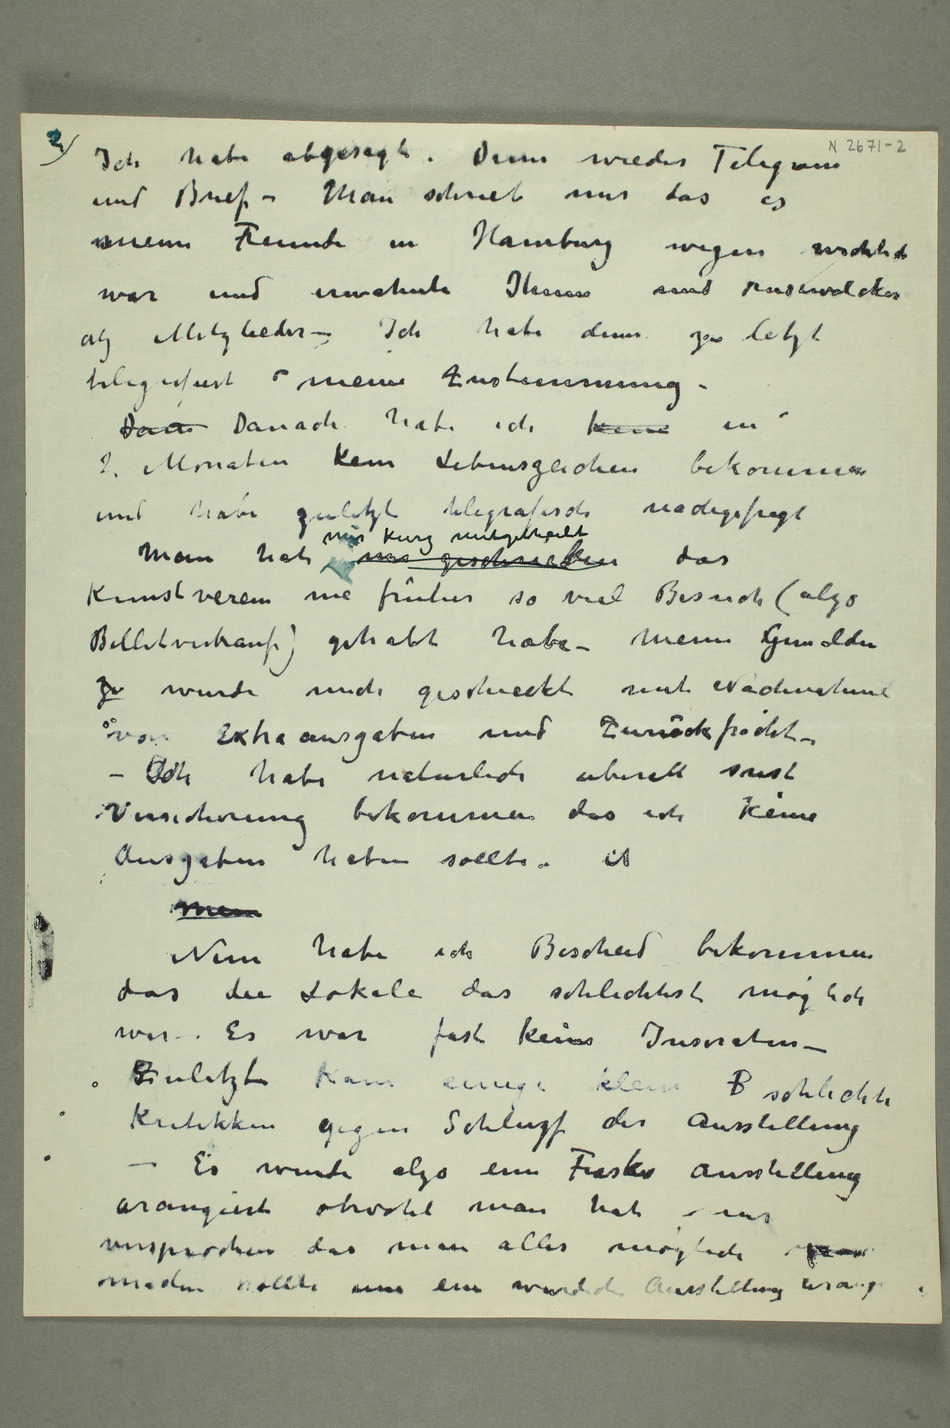 2)
N 2671-2
Ich habe abgesagt. Dann wieder Telegram
und Brief – Man schrieb mir das es
meine Freunde in Hamburg wegen wichtich
war und erwähnte Ihnen und
als Mitglieder – Ich habe denn zu letzt
telegrafiert meine Zustimmung –
Dann Danach habe ich keine in
2. Monaten kein Lebenszeichen bekommen
und habe zuletzt telegrafisch nachgefragt
mir kurz mitgetheilt
Man hat mir geschrieben das
Kunstverein nie früher so viel Besuch (also
Billetverkauf) gehabt habe – meine Gemälden
zu wurde mich geschickt mit Nachnahme
von Extraausgaben und Zurückfracht –
– Ich habe naturlich uberall sonst
Versicherung bekommen das ich keine
Ausgaben haben sollte. it
mein
Nun habe ich Bescheid bekommen
das die Lokale das schlechtest möglich
war. Es war fast keine Inseraten –
Zuletzte kam einige kleine B schlechte
Kritikken gegen Schlusz der Ausstellung
– Es wurde also eine Fiasko Ausstellung
arangiert obwohl man hat mir
versprochen das man alles mögliche
machen sollte um eine wurdich Ausstellung